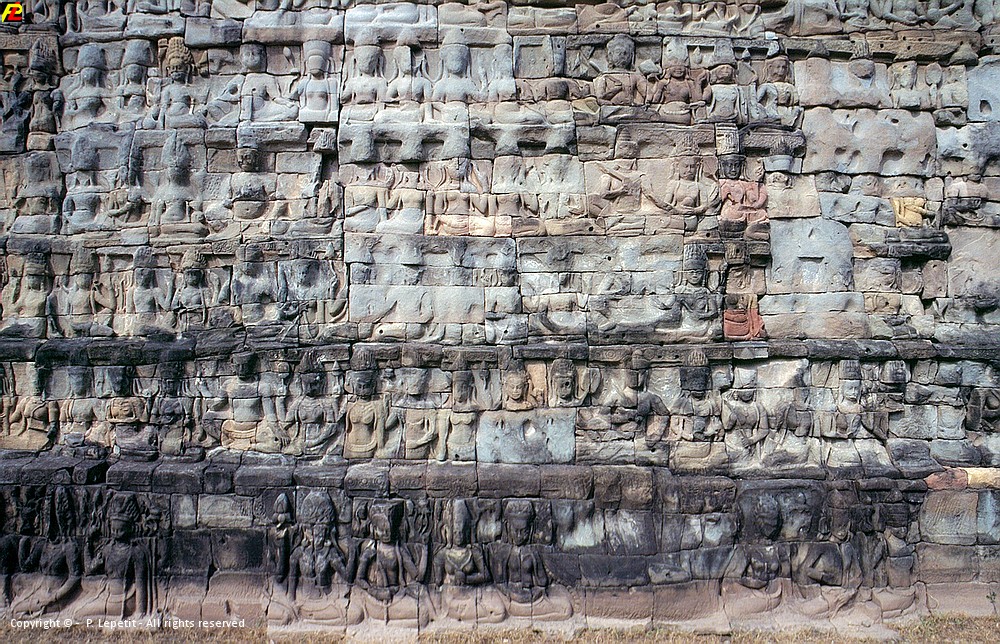 Copyright © - P. Lepetit - All rights reserved